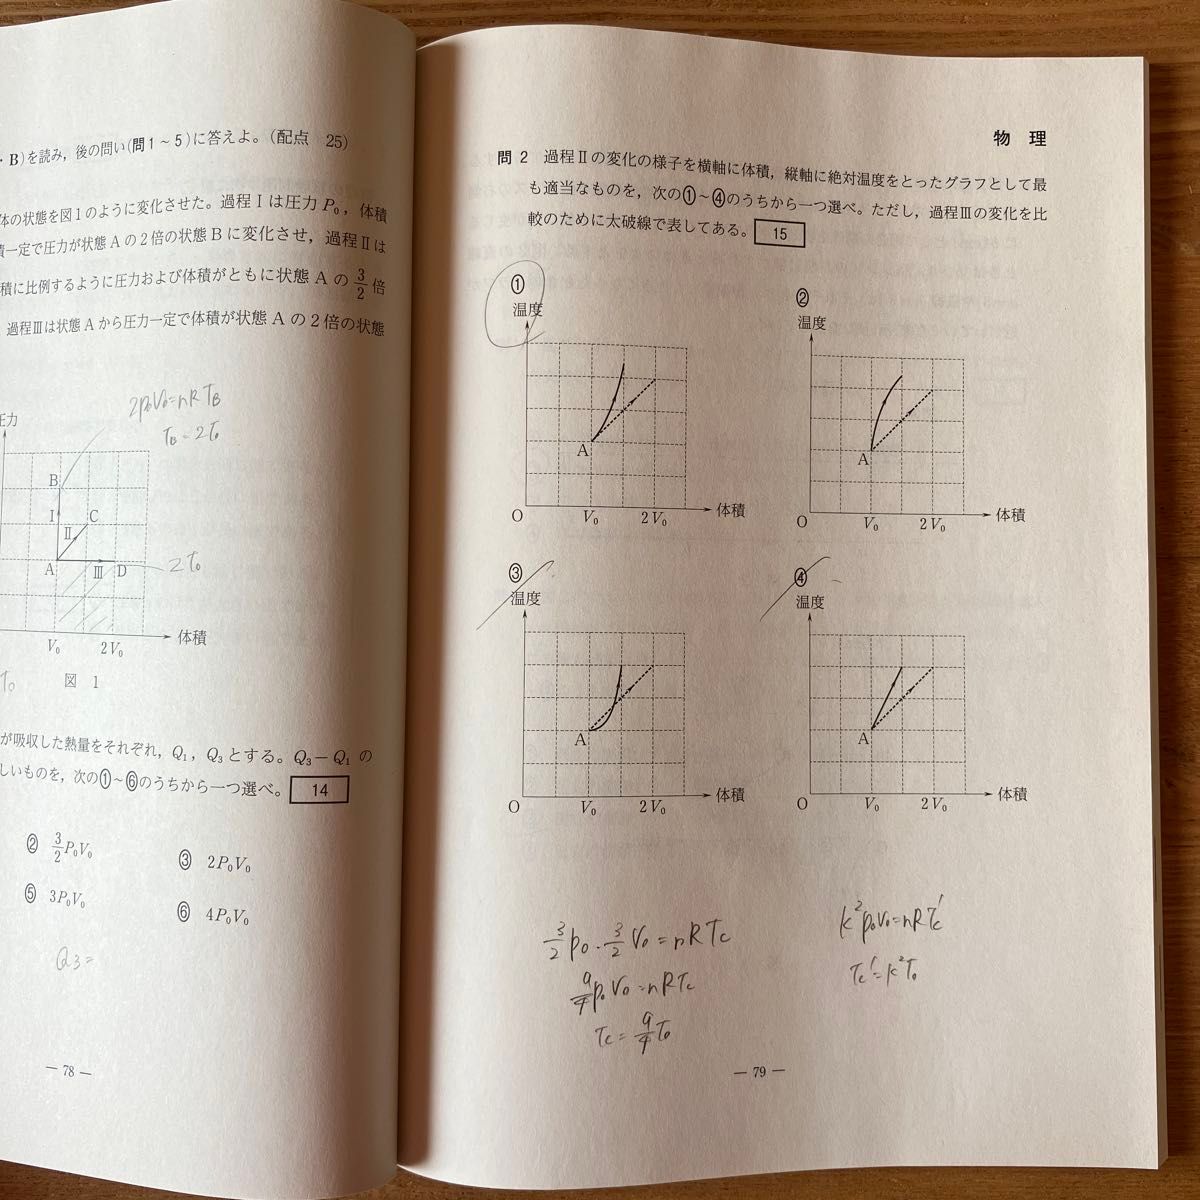 ・B)を読み，後の問い(問1～5)に答えよ。(配点 25)
体の状態を図1のように変化させた。過程Ⅰは圧力P₀，体積
積一定で圧力が状態Aの2倍の状態Bに変化させ，過程Ⅱは
積に比例するように圧力および体積がともに状態Aの3/2倍
過程Ⅲは状態Aから圧力一定で体積が状態Aの2倍の状態
2p₀V₀=nRT_B
T_B=2T₀
圧力
B
Ⅰ
C
Ⅱ
A
Ⅲ
D
2T₀
体積
V₀
2V₀
T₀
図 1
が吸収した熱量をそれぞれ，Q₁，Q₃とする。Q₃－Q₁の
しいものを，次の①～⑥のうちから一つ選べ。 14
② 3/2 P₀V₀
③ 2P₀V₀
⑤ 3P₀V₀
⑥ 4P₀V₀
Q₃=
― 78 ―
物 理
問 2 過程Ⅱの変化の様子を横軸に体積，縦軸に絶対温度をとったグラフとして最
も適当なものを，次の①～④のうちから一つ選べ。ただし，過程Ⅲの変化を比
較のために太破線で表してある。 15
①
温度
A
O
V₀
2V₀
体積
②
温度
A
O
V₀
2V₀
体積
③
温度
A
O
V₀
2V₀
体積
④
温度
A
O
V₀
2V₀
体積
3/2 p₀・3/2 V₀=nRTc
9/4 p₀V₀=nRTc
Tc=9/4 T₀
k²p₀V₀=nRTc'
Tc'=k²T₀
― 79 ―